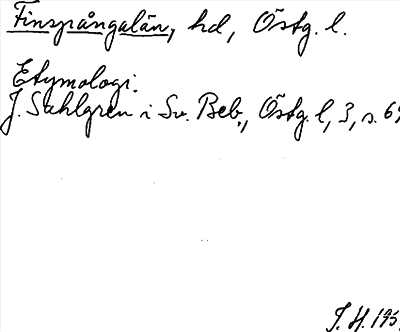 Finspångalän, hd, Östg. l.
Etymologi:
J. Sahlgren i Sv. Beb., Östg. l, 3, s.
J. H.